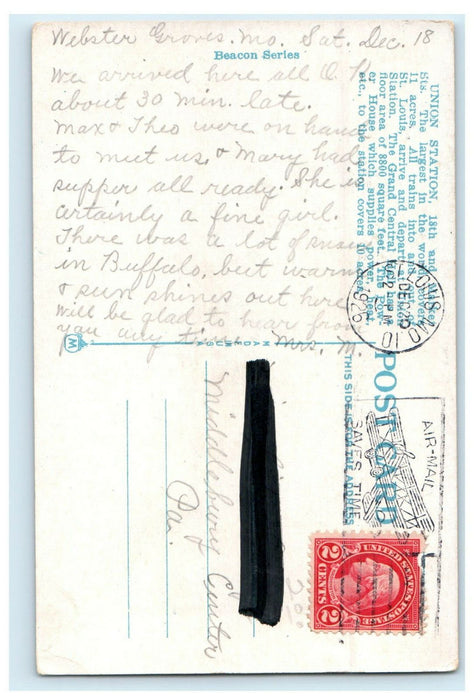 Webster Groves. Mo. Sat. Dec. 18
Beacon Series
We arrived here all O.K.
about 30 min. late.
Max & Theo were on hand
to meet us, & Mary had
supper all ready. She is
certainly a fine girl.
There was a lot of snow
in Buffalo, but warm
& sun shines out here.
Will be glad to hear from
you any time. Mrs. M.
UNION STATION, 18th and Market
Sts. The largest in the world, covers
11 acres. All trains into and out of
St. Louis, arrive and depart at Union
Station. The Grand Central has a
floor area of 8800 square feet. The Pow-
er House which supplies power, heat,
etc., to the station covers 10 acres.
POST CARD
THIS SIDE IS FOR THE ADDRESS
ST. LOUIS, MO.
DEC
1926
10
AIR-MAIL
SAVES TIME
UNITED STATES POSTAGE
2 CENTS 2
Middlebury Center
Pa.